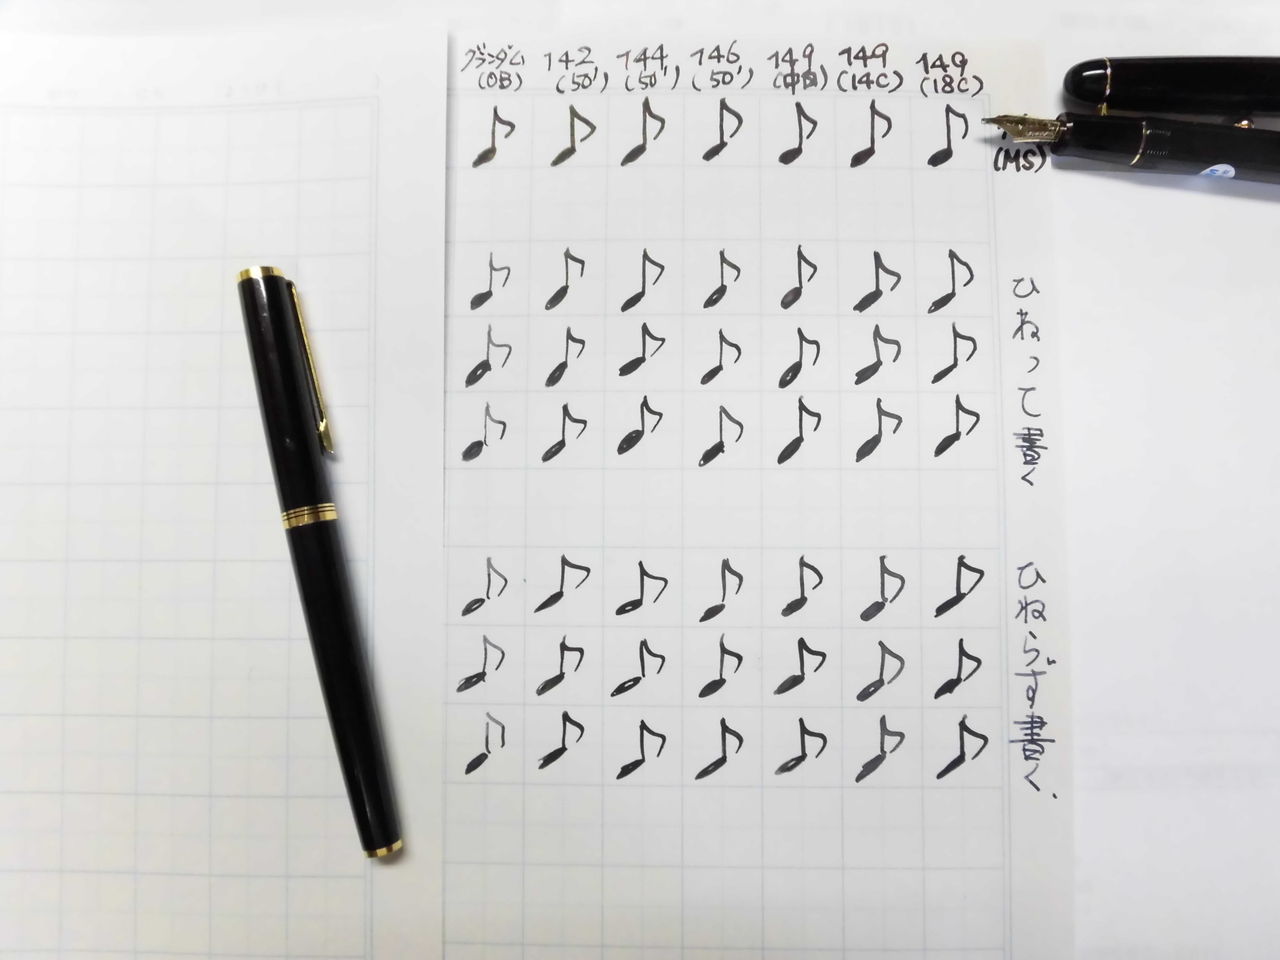 グランダム 142 144 146 149 149 149
(OB) (50') (50') (50') (中白) (14C) (18C)
(MS)
ひねって書く
ひねらず書く.